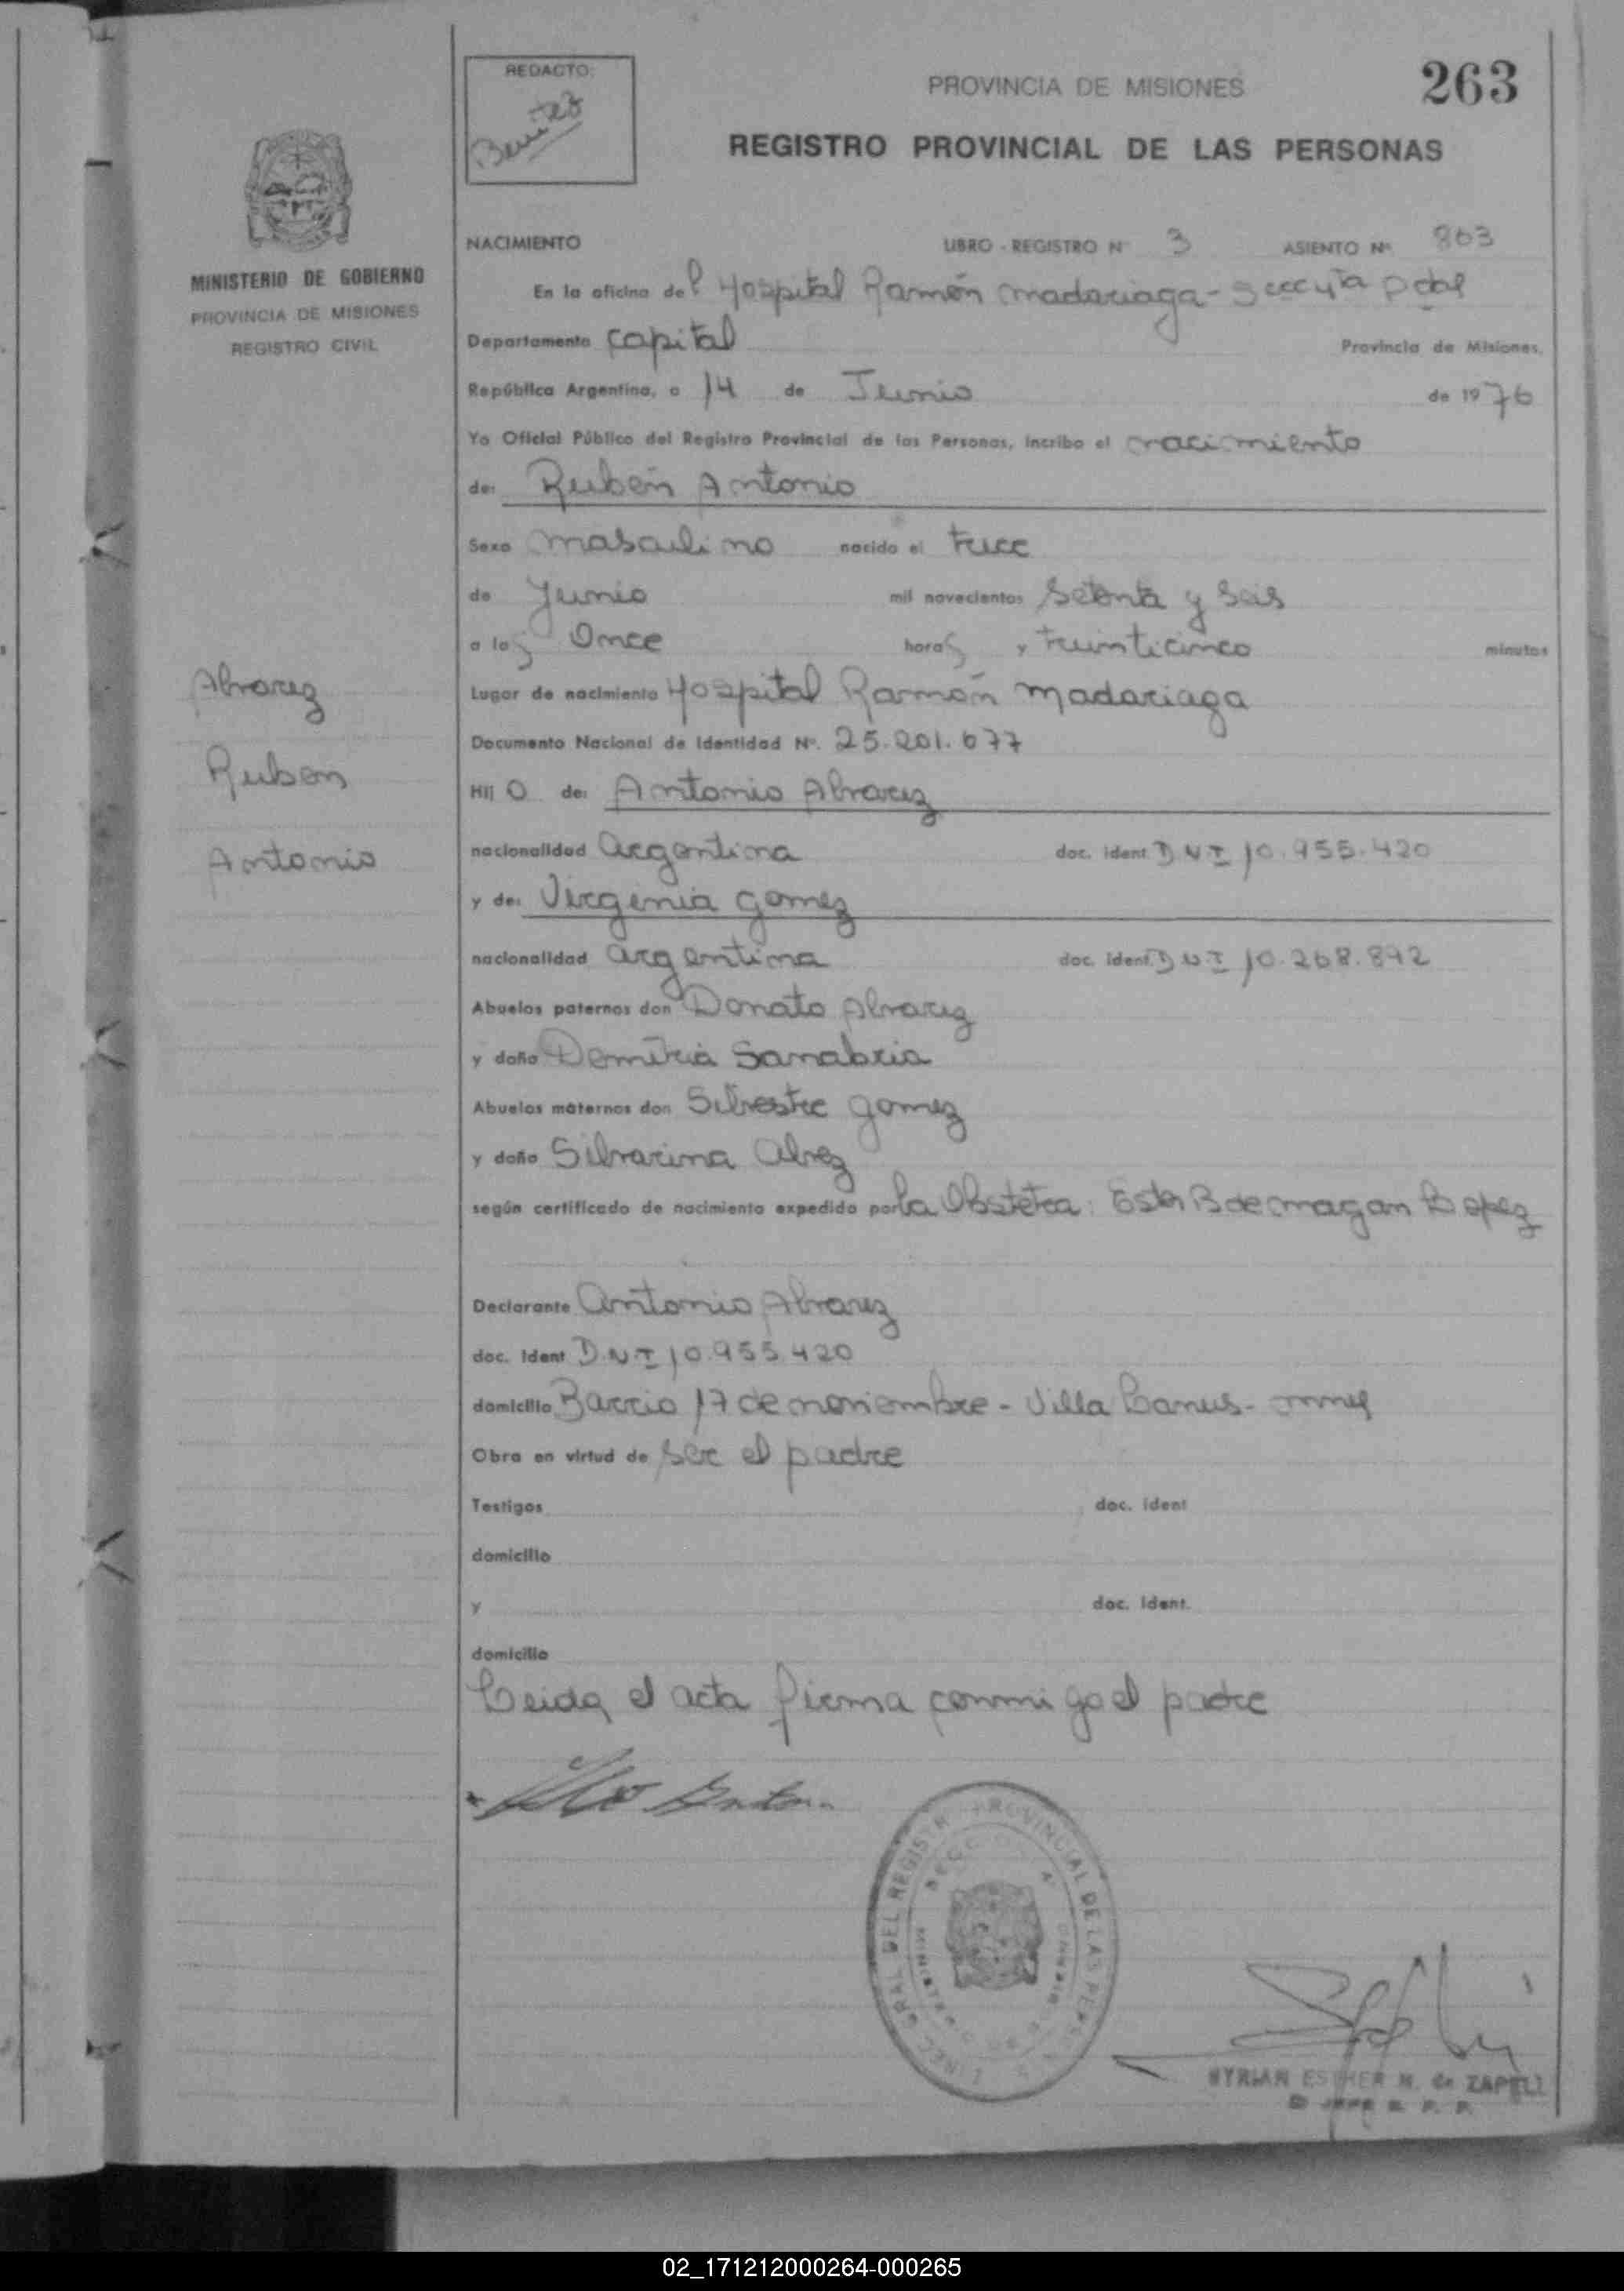 REDACTO:
Benitez
PROVINCIA DE MISIONES
263
REGISTRO PROVINCIAL DE LAS PERSONAS
MINISTERIO DE GOBIERNO
PROVINCIA DE MISIONES
REGISTRO CIVIL
NACIMIENTO LIBRO - REGISTRO Nº 3 ASIENTO Nº 803
En la oficina del Hospital Ramón madariaga -
Departamento Capital Provincia de Misiones,
República Argentina, a 14 de Junio de 1976
Yo Oficial Público del Registro Provincial de las Personas, incribo el nacimiento
de: Rubén Antonio
Sexo masculino nacido el trece
de Junio mil novecientos setenta y seis
a las Once horas y treinticinco minutos
Alvarez
Ruben
Antonio
Lugar de nacimiento Hospital Ramón madariaga
Documento Nacional de Identidad Nº. 25.201.677
Hijo de: Antonio Alvarez
nacionalidad argentina doc. ident D N I 10.955.420
y de: Virgenia gomez
nacionalidad argentina doc. ident. D N I 10.268.892
Abuelos paternos don Donato Alvarez
y doña Sanabria
Abuelos maternos don Silvestre gomez
y doña Silvarina Alvez
según certificado de nacimiento expedido por la Obstetra: Ester B de magan Lopez
Declarante Antonio Alvarez
doc. ident D.N.I 10.955.420
domicilio Barrio 17 de noviembre - Villa Lanus -
Obra en virtud de ser el padre
Testigos doc. ident
domicilio
y doc. ident.
domicilio
Leida el acta firma conmigo el padre
REGISTR PROVINCIAL DE LAS
MYRIAN ESTHER M. de ZAPELLI
02_171212000264-000265